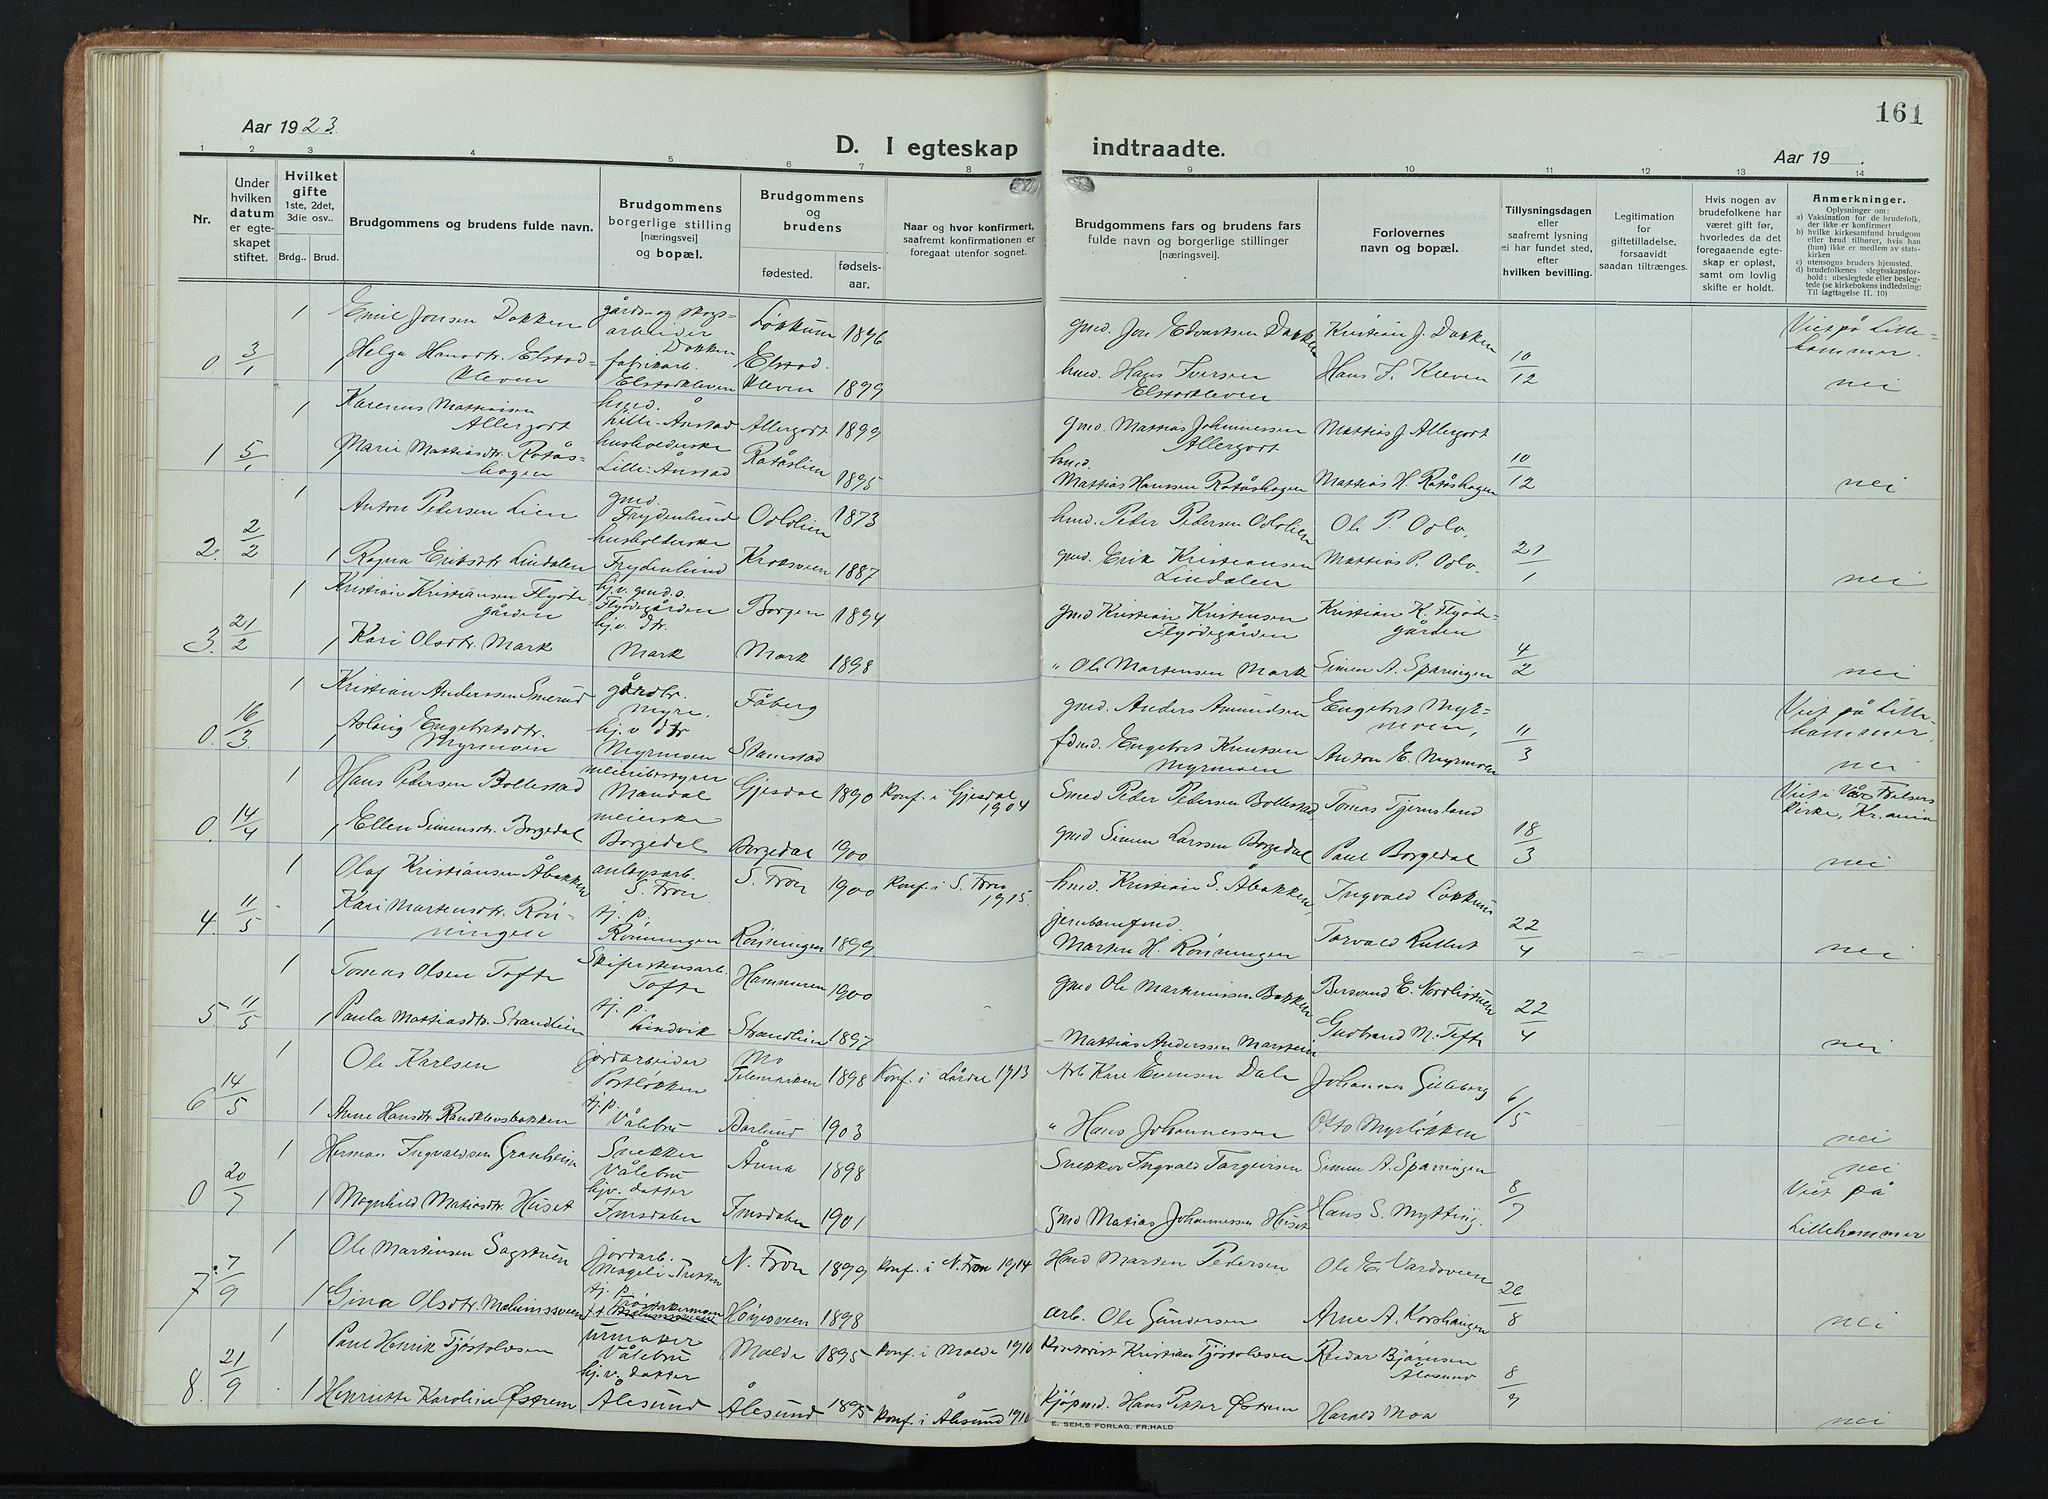 161
Aar 1923.
D. I egteskap indtraadte.
Aar 19 .
1 2 3 4 5 6 7 8 9 10 11 12 13 14
Nr.
Under hvilken datum er egteskapet stiftet.
Hvilket gifte 1ste, 2det, 3die osv..
Brdg.. Brud.
Brudgommens og brudens fulde navn.
Brudgommens borgerlige stilling [næringsvei] og bopæl.
Brudgommens og brudens
fødested. fødselsaar.
Naar og hvor konfirmert, saafremt konfirmationen er foregaat utenfor sognet.
Brudgommens fars og brudens fars fulde navn og borgerlige stillinger [næringsvei].
Forlovernes navn og bopæl.
Tillysningsdagen eller saafremt lysning ei har fundet sted, efter hvilken bevilling.
Legitimation for giftetilladelse, forsaavidt saadan tiltrænges.
Hvis nogen av brudefolkene har været gift før, hvorledes da det foregaaende egteskap er opløst, samt om lovlig skifte er holdt.
Anmerkninger.
Oplysninger om:
a) Vaksination for de brudefolk, der ikke er konfirmert
b) hvilke kirkesamfund brudgom eller brud tilhører, hvis han (hun) ikke er medlem av statskirken
c) utensogns bruders hjemsted.
d) brudefolkenes slegtsskapsforhold: ubeslegtede eller beslegtede (se kirkebokens indledning: Til iagttagelse II. 10)
0 3/1 1 Emil Jonsen Dokken gårds- og skogsarbeider Dokken Løkkum 1896 gmd. Jon Edvartsen Dokken Kristian J. Dokken 10/12 Viet på Lillehammer.
1 Helga Hansdtr. Elstadkleven fabrikarb. Elstadkleven Elstadkleven 1899 hmd. Hans Iversen Elstadkleven Hans I. Kleven nei
1 5/1 1 Karenus Mattiasen Allergodt hmd. Lille-Anstad Allergodt 1899 gmd. Mattias Johannessen Allergodt Mattias J. Allergodt 10/12
1 Marie Mattiasdtr. Rotåshagen husholderske Lille-Ånstad Rotåslien 1895 hmd. Mattias Hanssen Rotåshagen Mattias H. Rotåshagen nei
2. 2/2 1 Anton Pedersen Lien gmd. Frydenlund Oslolien 1873 hmd. Peder Pedersen Oslolien Ole P. Oslo, 21/1
1 Ragna Eriksdtr. Lindalen husholderske Frydenlund Kroksveen 1887 gmd. Erik Kristiansen Lindalen Mattias P. Oslo. nei
3. 21/2 1 Kristian Kristiansen Flyødegården hj.v. gmd.s. Flyødegården Borgen 1894 gmd Kristian Kristensen Flyødegården Kristian K. Flyødegården 4/2
1 Kari Olsdtr. Mark hj.v. dtr. Mark Mark 1898 " Ole Martensen Mark Simen A. Sparingen nei
0. 16/3 1 Kristian Anderssen Smerud gårdbr. Myre. Fåberg gmd. Anders Amundsen Engebret Myrmoen, 11/3 Viet på Lillehammer,
1 Aslaug Engebretsdtr. Myrmoen hj.v dtr Myrmoen Stamstad fdmd. Engebret Knutsen Myrmoen Anton E. Myrmoen nei
0. 14/4 1 Hans Pedersen Bollestad meieribestyrer Mandal Gjesdal 1890 Konf. i Gjesdal 1904 Smed Peder Pedersen Bollestad, Tomas Tjemsland 18/3 Viet i Vår Frelsers kirke, Kr.ania
1 Ellen Simensdtr. Borgedal meierske Borgedal Borgedal 1900 gmd Simen Larssen Borgedal Paul Borgedal nei
4. 11/5 1 Olaf Kristiansen Åbakken anlegsarb. S. Fron S. Fron 1900 Konf. i S. Fron 1915. hmd. Kristian S. Åbakken, Ingvald Løkkum 22/4
1 Kari Martensdtr. Rønningen tj. p. Rønningen Rønningen 1899. jernbanefmd. Marten H. Rønningen Torvald Rullut nei
5. 11/5 1 Tomas Olsen Tofte Skiferstensarb. Tofte Hammeren 1900 gmd Ole Markussen Bakken Bersvend E. Nordlistuen 22/4
1 Paula Mattiasdtr. Strandlien tj. p. Lindvik Strandlien 1897 – Mattias Anderssen Marstein Gudbrand M. Tofte nei
6 14/5 1 Ole Karlsen jordarbeider Postløkken Mo Telemarken 1898 Konf. i Lårdal 1913 Arb. Karl Evensen Dale Johannes Gilleberg 6/5
1 Anne Hansdtr. Randklevsbakken tj. p. Vålebru Barlund 1903 " Hans Johannessen Otto Myrløkken nei
0 20/7 1 Herman Ingvaldsen Granheim Snekker Vålebru Åmna 1898 Snekker Ingvald Targeirsen Simen A. Sparingen 8/7 nei
1 Magnhild Matiasdtr. Huset hjv. datter Imsdalen Imsdalen 1901 gmd Matias Johannessen Huset Hans S. Mytting. Viet på Lillehammer
7. 7/9 1 Ole Martinsen Sagstuen jordarb. Mageli-Tretten N. Fron 1899 Konf. i N. Fron 1914 Hmd Marten Pedersen Ole E. Vardeveen 26/8
1 Gina Olsdtr. Melumsveen tj. p. Høyesveen 1898 arb. Ole Gundersen Arne A. Korshaugen nei
8. 21/9 1 Paul Henrik Tjøstolvsen urmaker Vålebru Molde 1895 Konf. i Molde 1910 Kontorist Kristian Tjøstolvsen Reidar Bjørnsen Ålesund 8/9
1 Henriette Karoline Østrem hj.v. datter Ålesund Ålesund 1895 Konf. i Ålesund 1910 Kjøpmd. Hans Petter Østrem Harald Moa nei
E. SEM.S FORLAG. FR.HALD